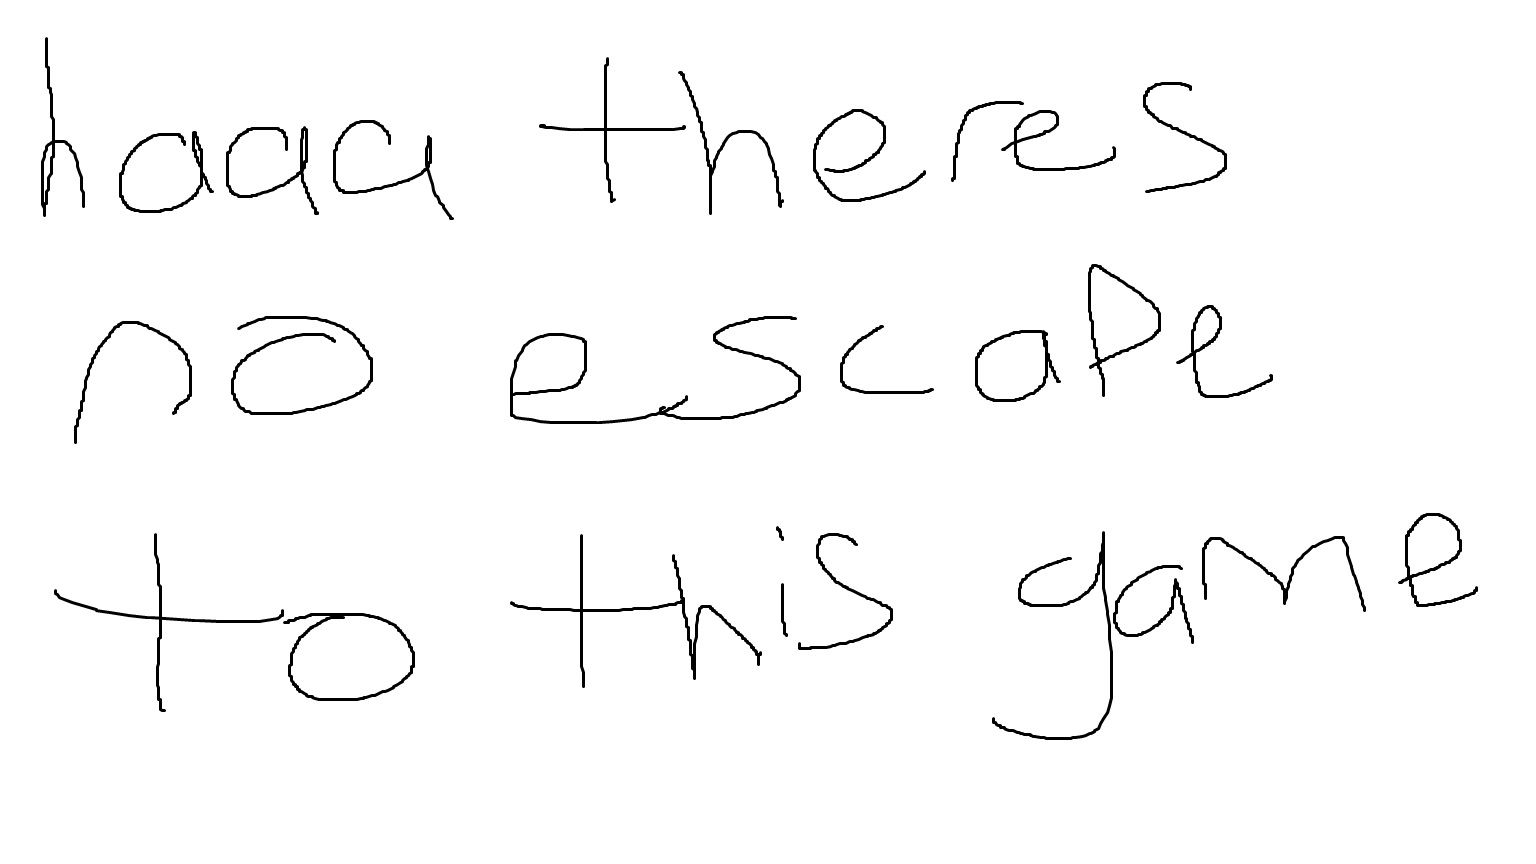 haaa theres
no escape
to this game